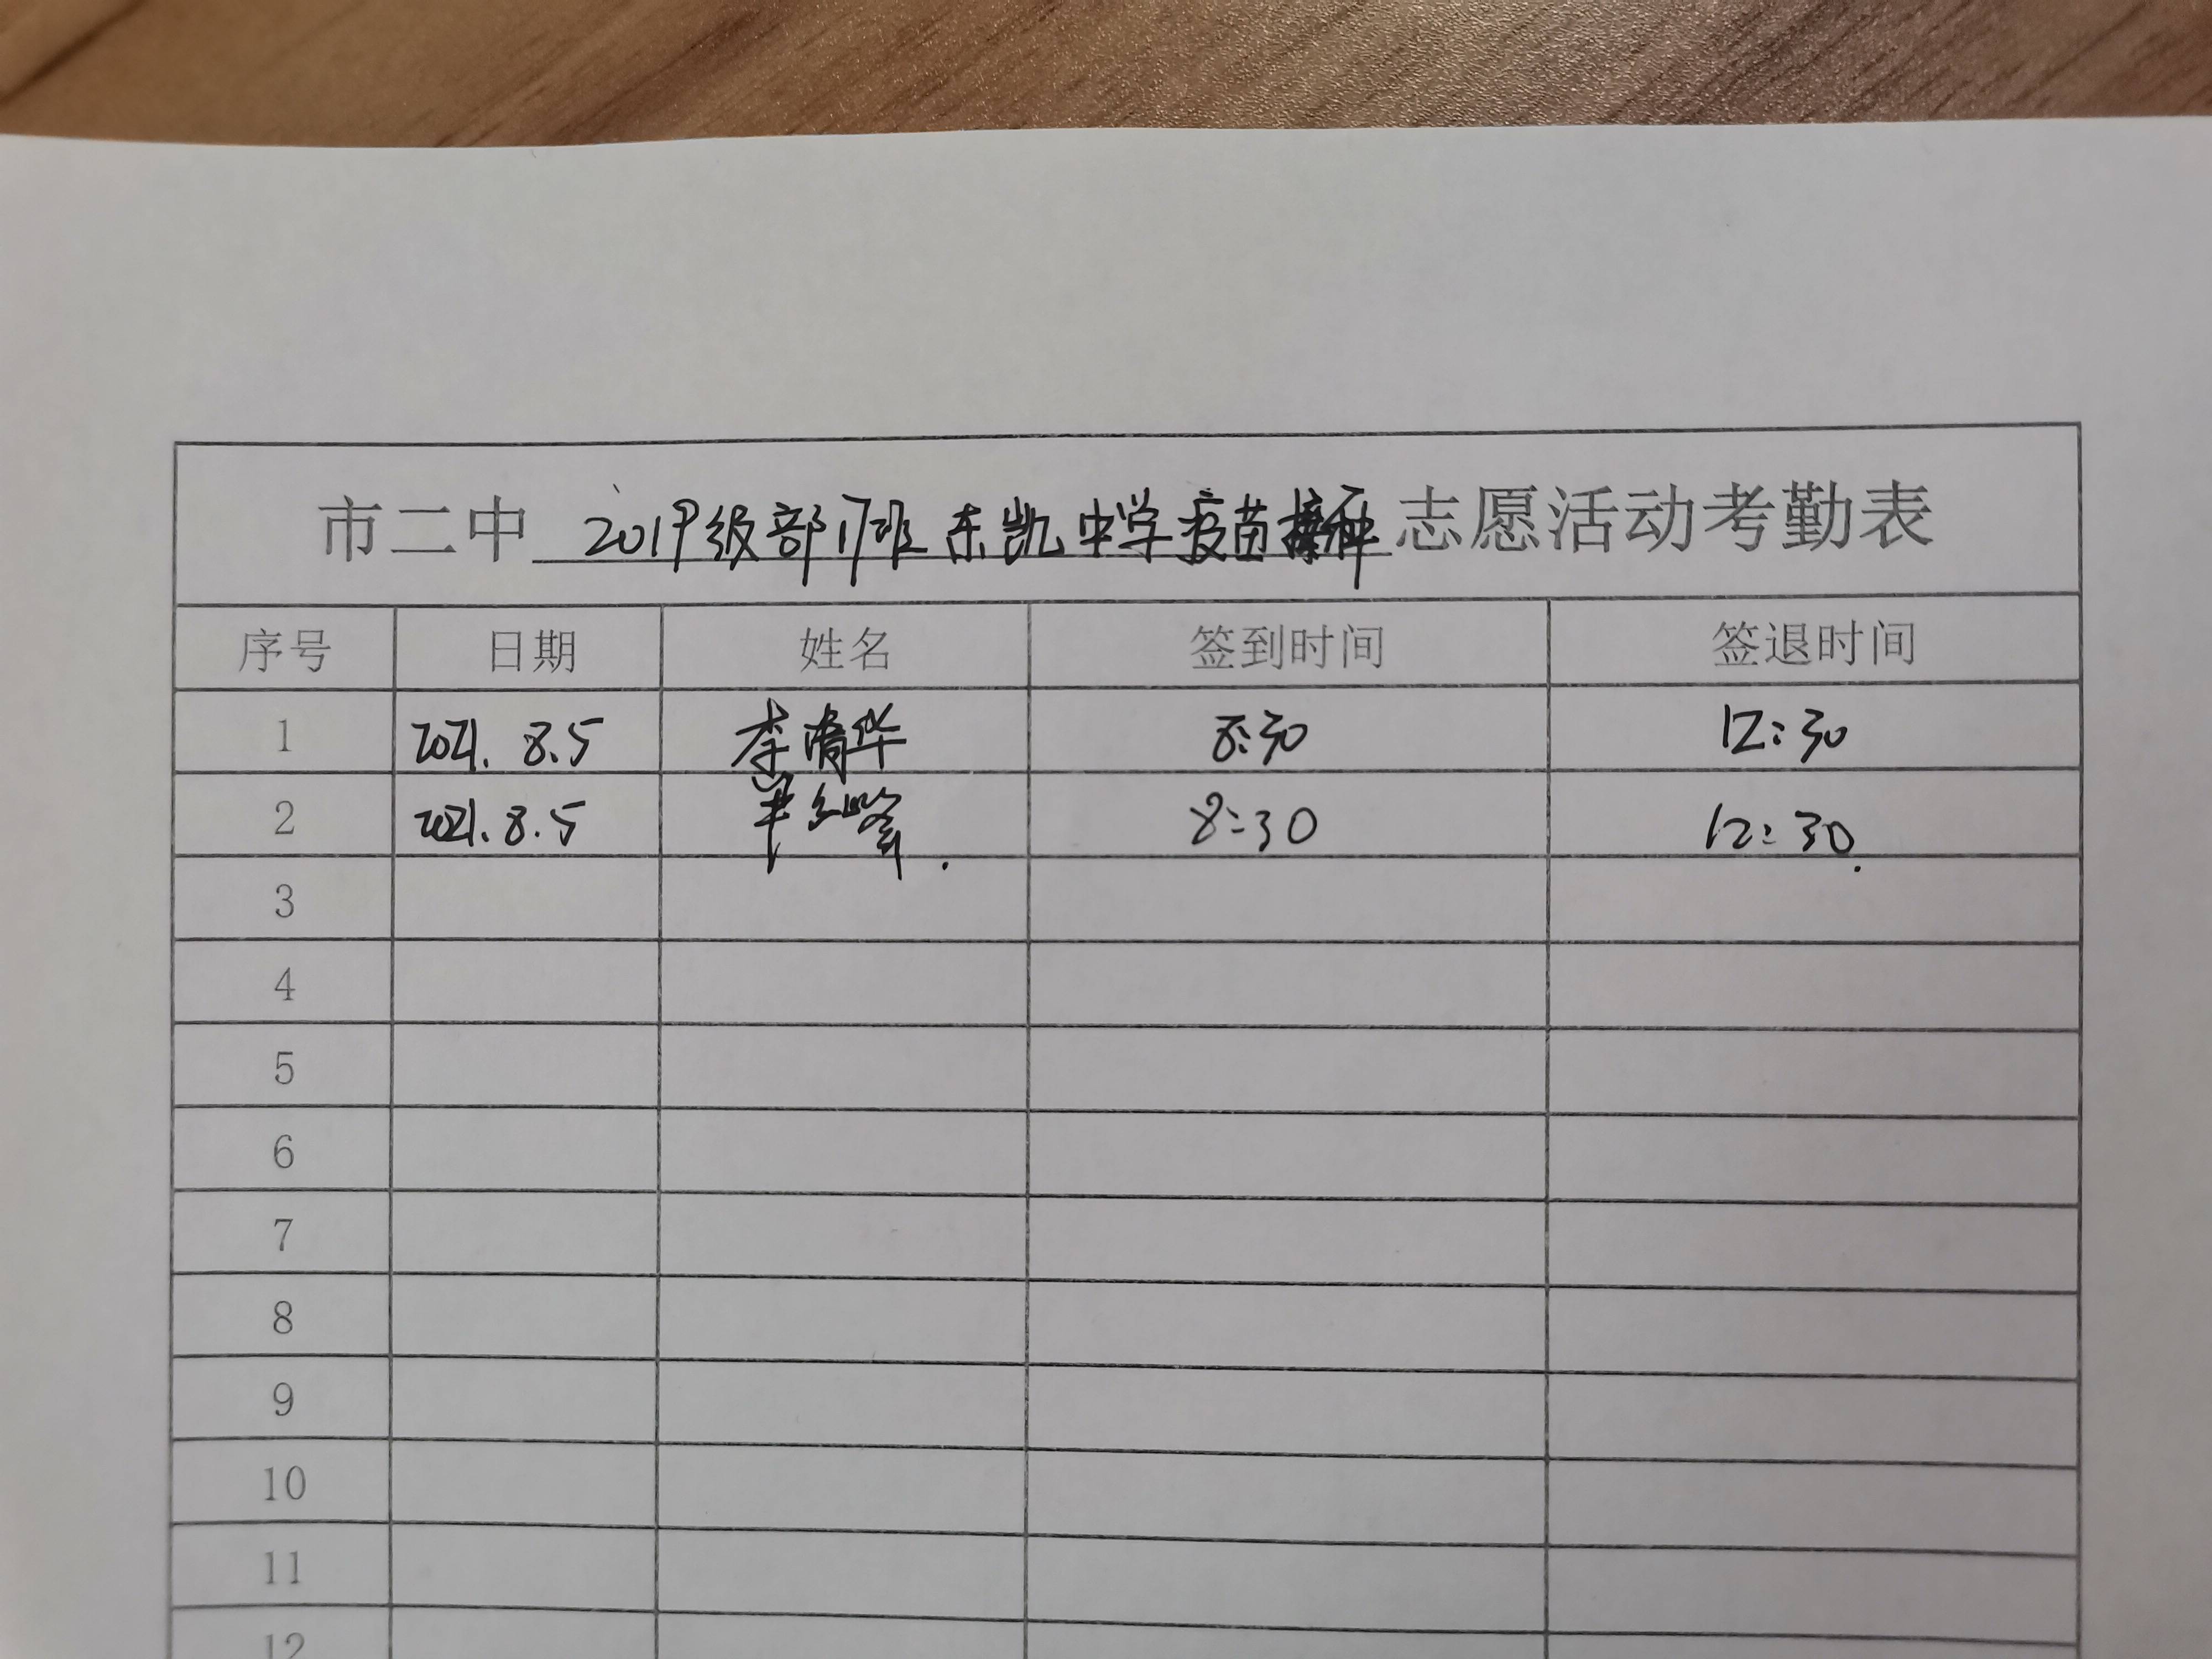 市二中 2019级部17班东凯中学疫苗接种 志愿活动考勤表
序号 日期 姓名 签到时间 签退时间
1 2021.8.5 李清华 8:30 12:30
2 2021.8.5 8:30 12:30.
3
4
5
6
7
8
9
10
11
12